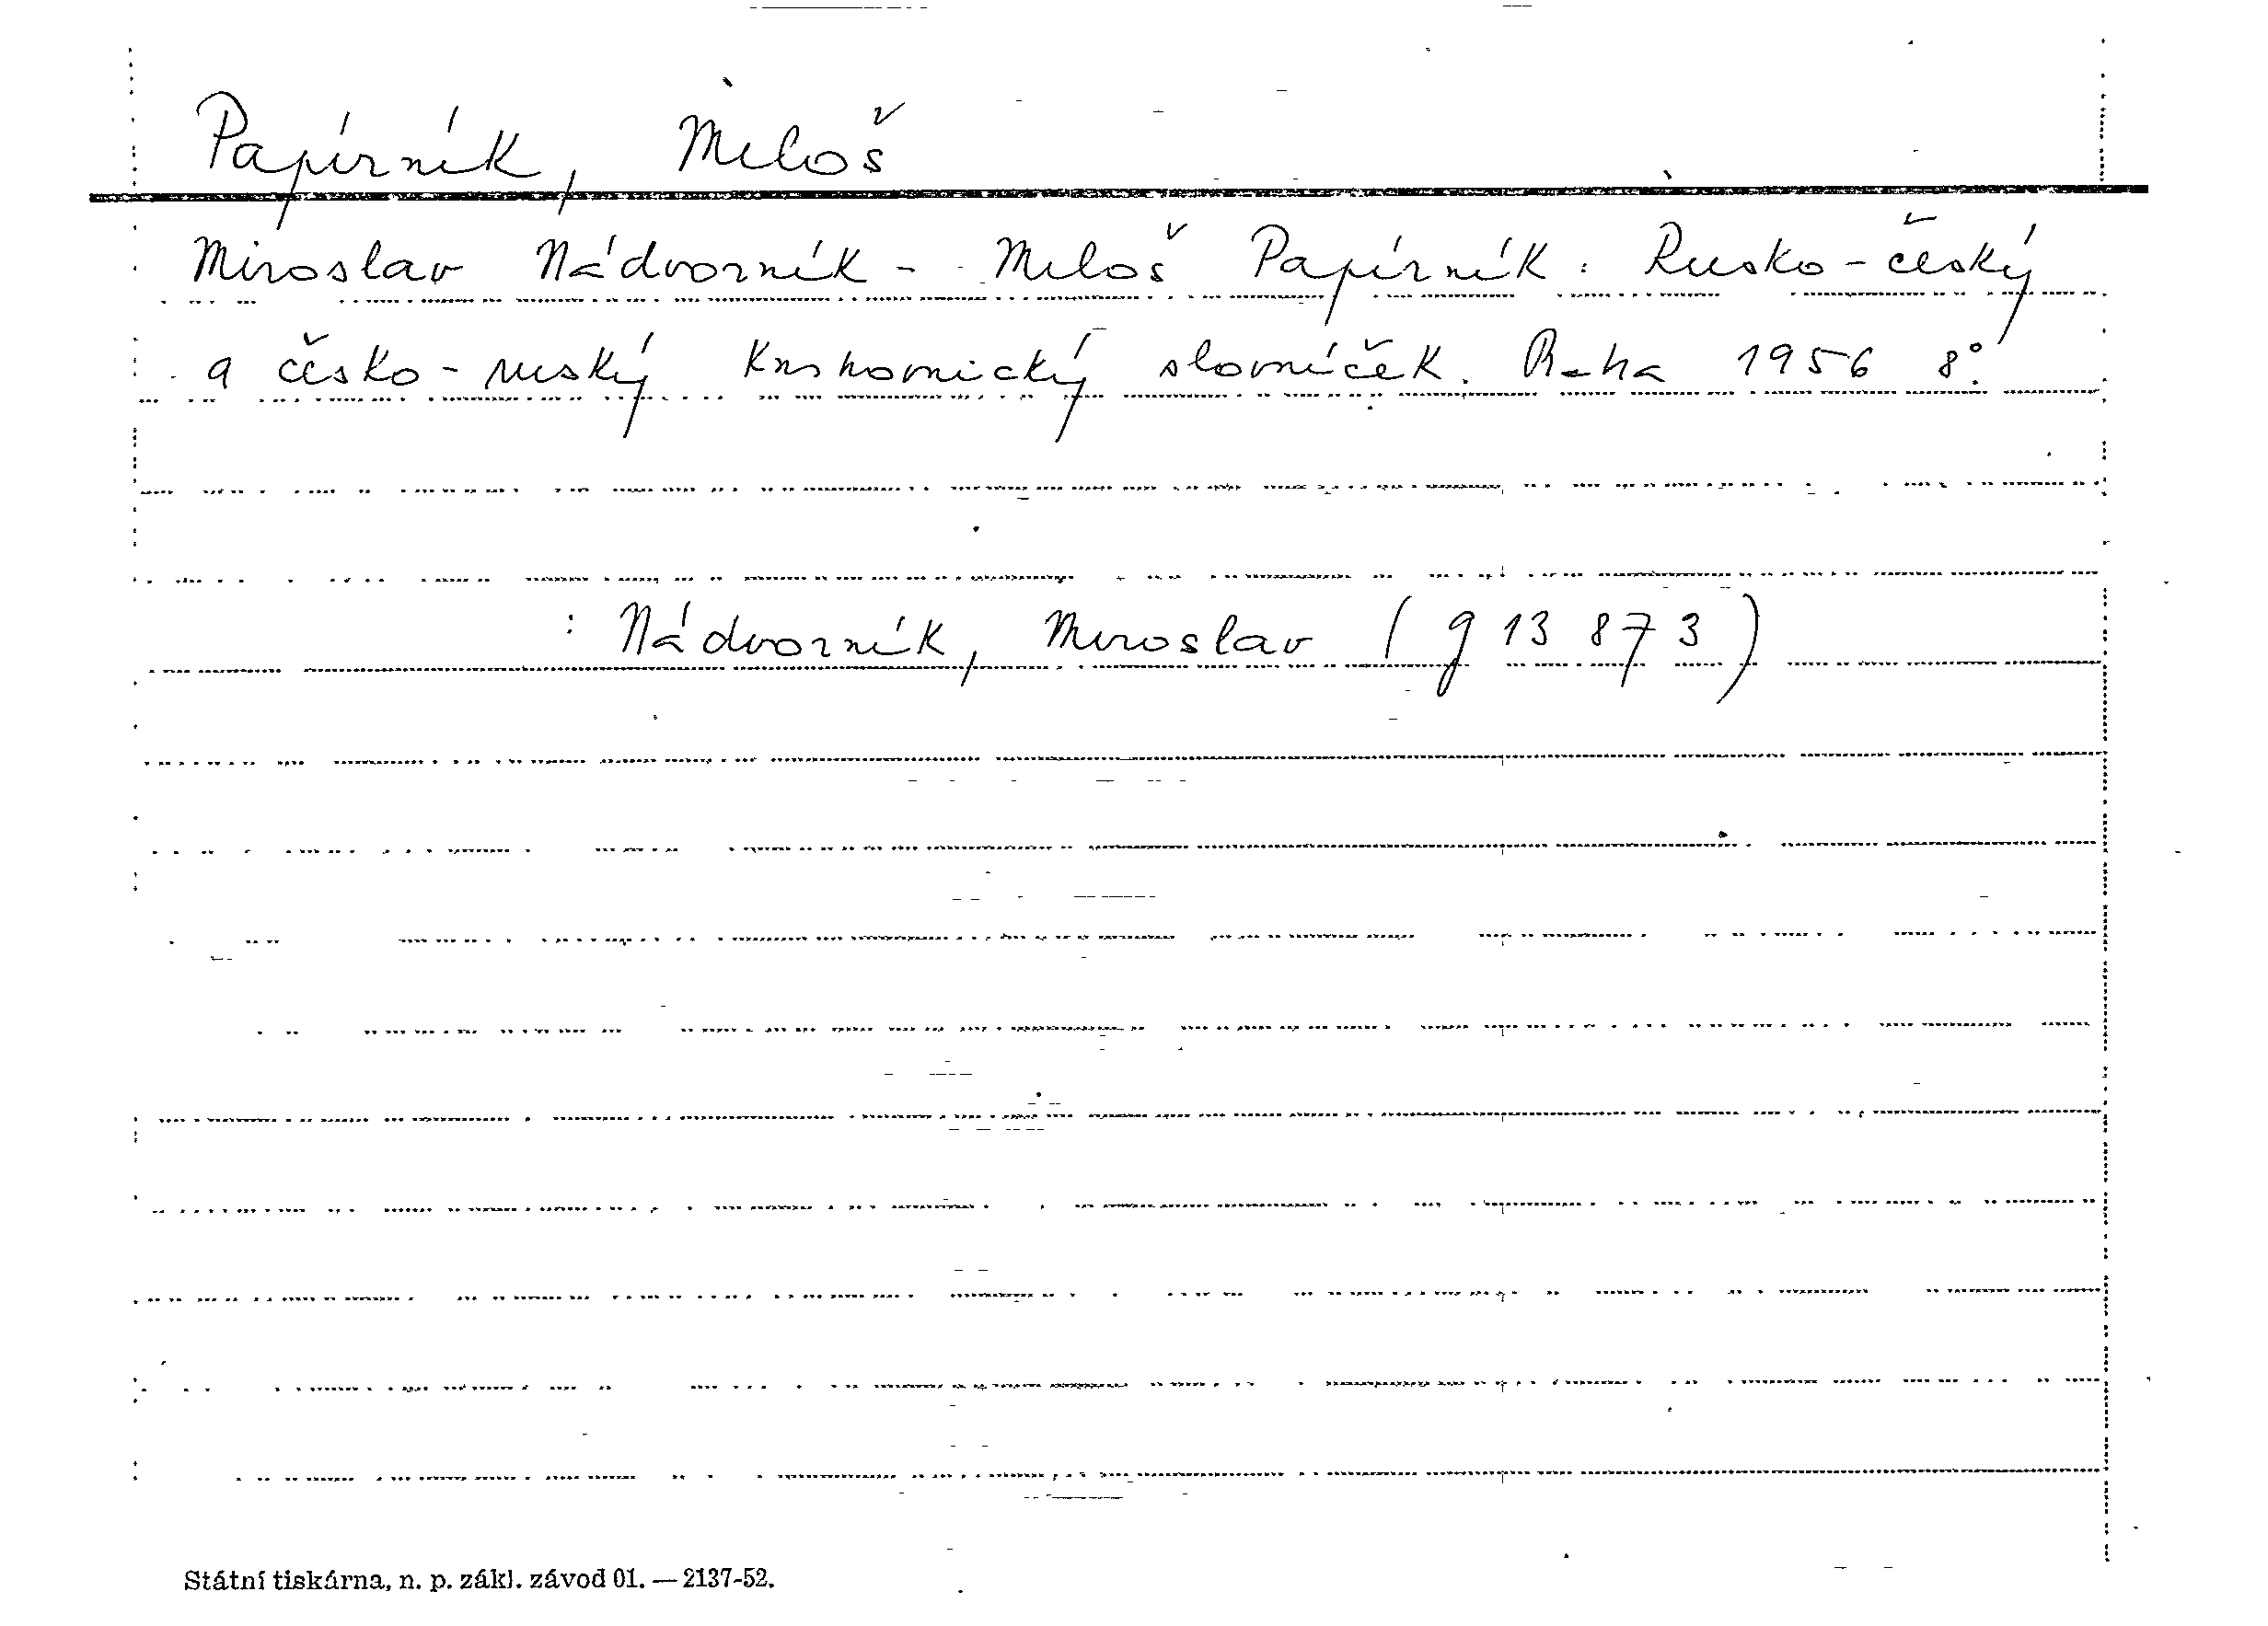 Papírník, Miloš
Miroslav Nádvorník - Miloš Papírník: Rusko-český
a česko-ruský knihovnický slovníček. Praha 1956 8°.
: Nádvorník, Miroslav (g 13 873)
Státní tiskárna, n. p. zákl. závod 01. — 2137-52.